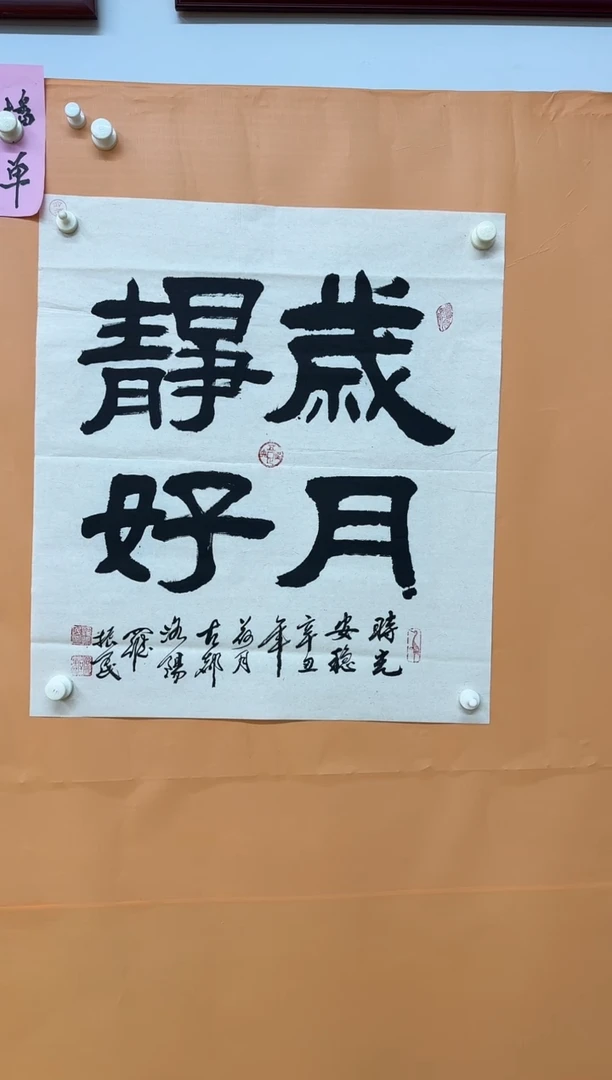 歲月
靜好
時光
安穩
辛丑
年
荷月
古都
洛陽
羅
振民
單